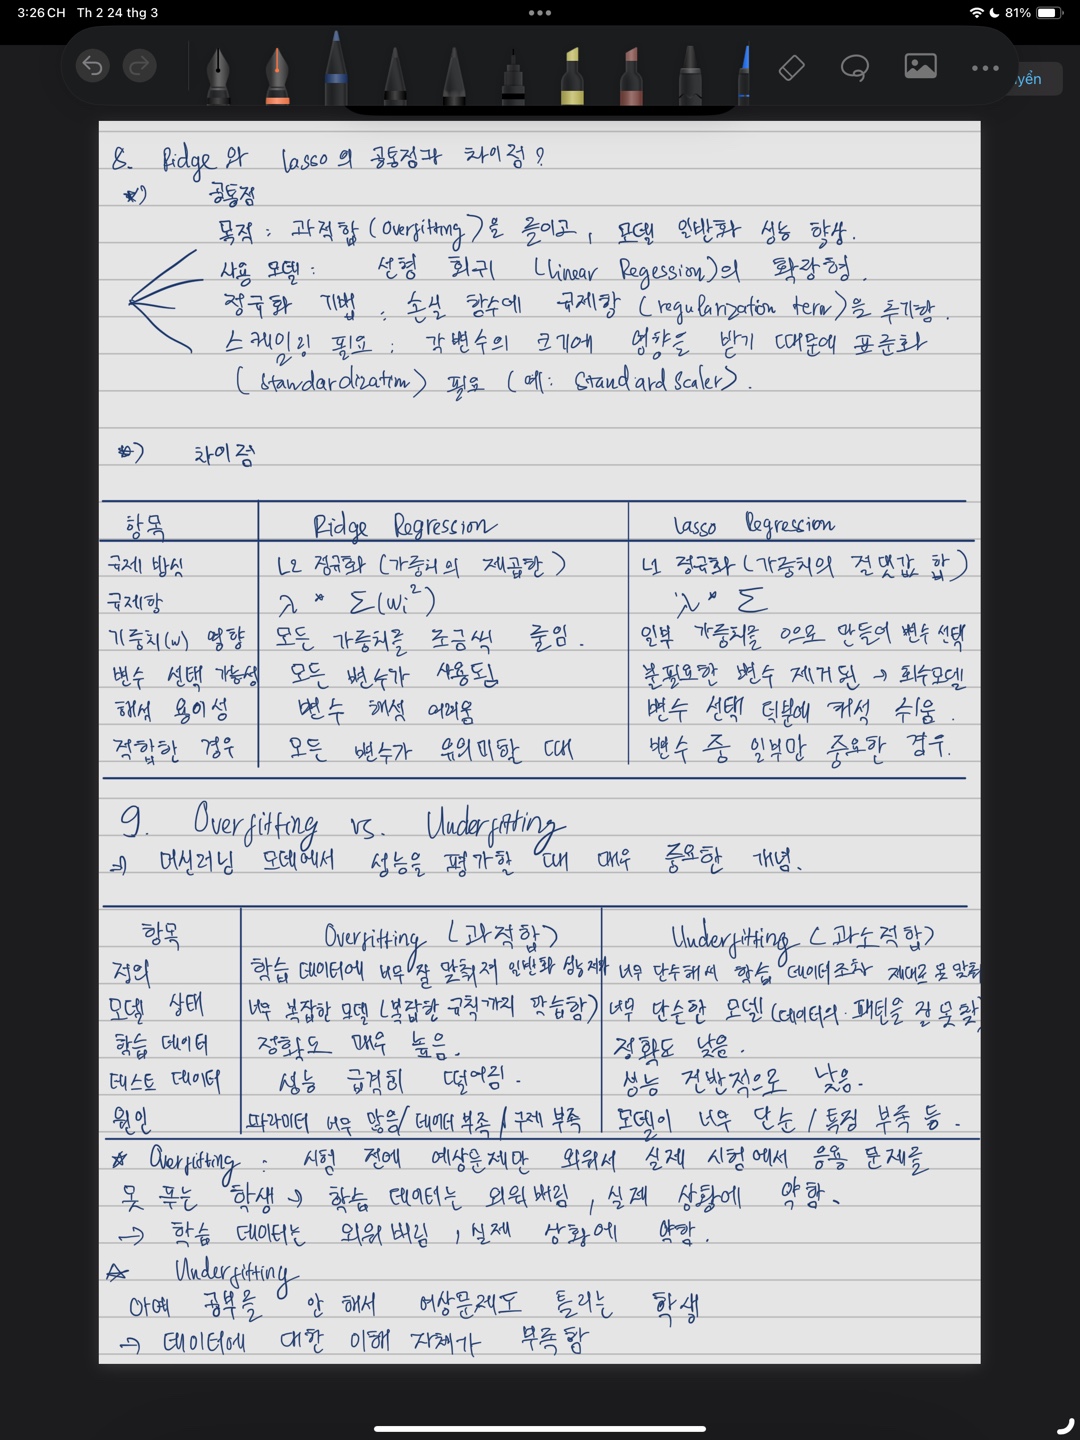 3:26 CH Th 2 24 thg 3
81%
yển
8. Ridge 와 Lasso의 공통점과 차이점?
*) 공통점
목적 : 과적합(Overfitting)을 줄이고, 모델 일반화 성능 향상.
사용 모델 : 선형 회귀 (Linear Regession)의 확장형.
정규화 기법 : 손실 함수에 규제항 (regularization term)을 추가함.
스케일링 필요 : 각 변수의 크기에 영향을 받기 때문에 표준화
(Standardization) 필요 (예: StandardScaler).
*) 차이점
항목 Ridge Regression Lasso Regression
규제 방식 L2 정규화 (가중치의 제곱합) L1 정규화 (가중치의 절댓값 합)
규제항 λ * Σ(wi²) λ * Σ
가중치(w) 영향 모든 가중치를 조금씩 줄임. 일부 가중치를 0으로 만들어 변수 선택
변수 선택 가능성 모든 변수가 사용됨 불필요한 변수 제거됨 → 희소모델
해석 용이성 변수 해석 어려움 변수 선택 덕분에 해석 쉬움.
적합한 경우 모든 변수가 유의미할 때 변수 중 일부만 중요한 경우.
9. Overfitting vs. Underfitting
⇒ 머신러닝 모델에서 성능을 평가할 때 매우 중요한 개념.
항목 Overfitting (과적합) Underfitting (과소적합)
정의 학습 데이터에 너무 잘 맞춰져 일반화 성능 저하 너무 단순해서 학습 데이터조차 제대로 못 맞춰
모델 상태 너무 복잡한 모델 (복잡한 규칙까지 학습함) 너무 단순한 모델 (데이터의 패턴을 잘 못 찾)
학습 데이터 정확도 매우 높음. 정확도 낮음.
테스트 데이터 성능 급격히 떨어짐. 성능 전반적으로 낮음.
원인 파라미터 너무 많음 / 데이터 부족 / 규제 부족 모델이 너무 단순 / 특징 부족 등.
☆ Overfitting : 시험 전에 예상문제만 외워서 실제 시험에서 응용 문제를
못 푸는 학생 → 학습 데이터는 외워버림, 실제 상황에 약함.
→ 학습 데이터는 외워버림, 실제 상황에 약함.
☆ Underfitting
아예 공부를 안 해서 예상문제도 틀리는 학생
→ 데이터에 대한 이해 자체가 부족함